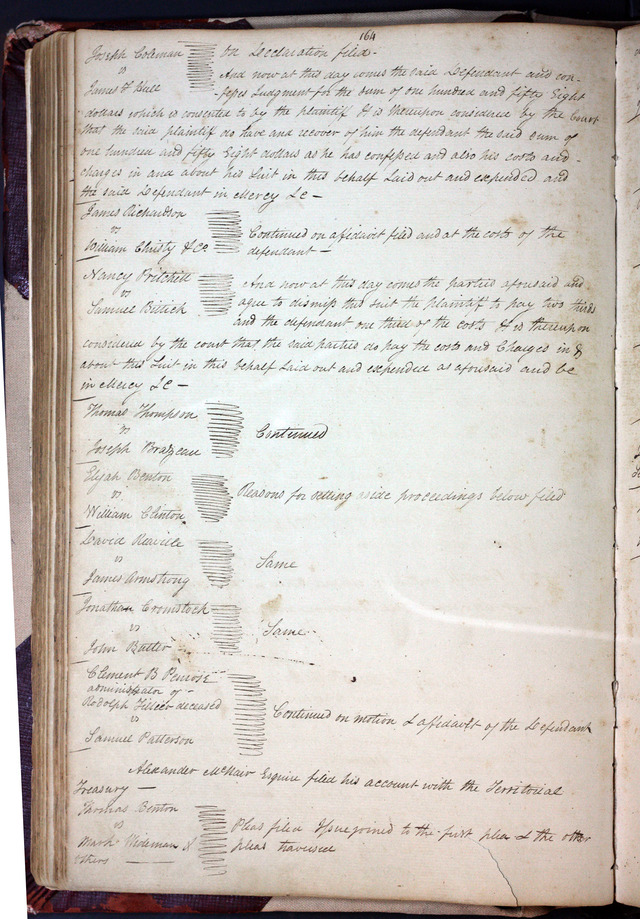 164
Joseph Coleman
vs
James F Hull
On Declaration filed -
And now at this day comes the said Defendant and con-
fesses Judgment for the sum of one hundred and fifty Eight
dollars which is consented to by the plaintiff It is thereupon considered by the Court
that the said plaintiff do have and recover of him the defendant the said sum of
one hundred and fifty Eight dollars as he has confessed and also his costs and
charges in and about his Suit in this behalf Laid out and expended and
the said Defendant in Mercy &c -
James Richardson
vs
William Christy &Co
Continued on affidavit filed and at the costs of the
defendant -
Nancy Pritchell
vs
Samuel
And now at this day comes the parties aforesaid and
agree to dismiss this suit the plaintiff to pay two thirds
and the defendant one third of the costs It is thereupon
considered by the court that the said parties do pay the costs and Charges in &
about this Suit in this behalf Laid out and expended as aforesaid and be
in Mercy &c -
Thomas Thompson
vs
Joseph Brazeau
Continued
Elijah Benton
vs
William Clinton
Reasons for setting aside proceedings below filed
David Reaville
vs
James Armstrong
Same
Jonathan Cromstock
vs
John Butler
Same
Clement B Penrose
administrator of
Rodolph deceased
vs
Samuel Patterson
Continued on motion & affidavit of the Defendant
Alexander McNair Esquire filed his account with the Territorial
Treasury -
Thomas Benton
vs
Mark Wideman &
others
Pleas filed Issue joined to the first plea & the other
pleas traversed